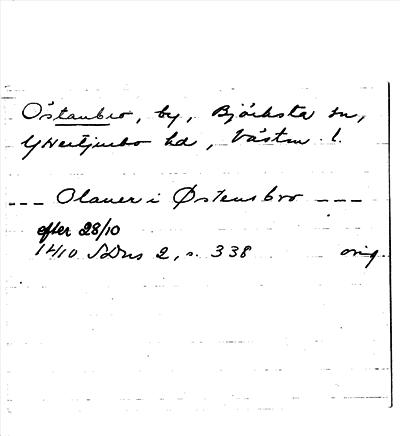 Östanbro, by, Björksta sn,
Yttertjurbo hd, Västm. l.
--- Olauer i Østensbro ---
efter 28/10
1410 SDns 2, s. 338 orig.